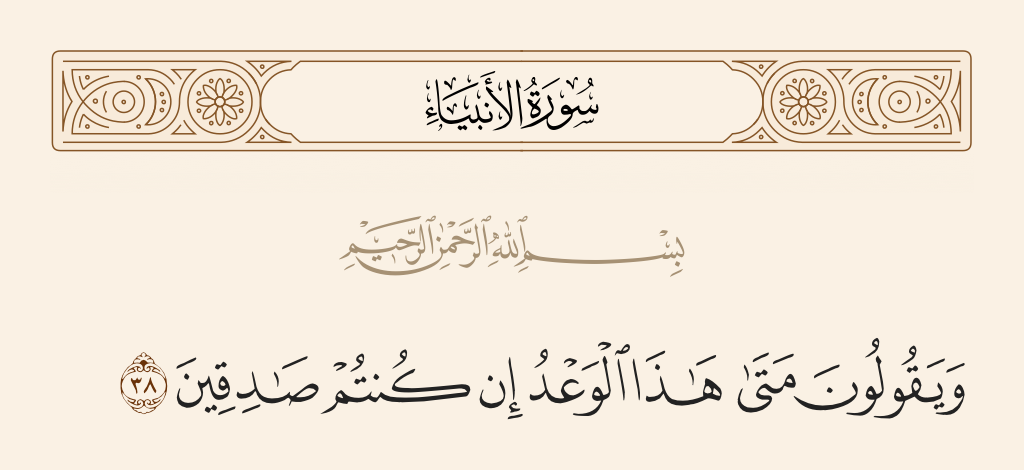 سُورَةُ الأَنبِيَاءِ
بِسْمِ ٱللَّهِ ٱلرَّحْمَٰنِ ٱلرَّحِيمِ
وَيَقُولُونَ مَتَىٰ هَٰذَا ٱلْوَعْدُ إِن كُنتُمْ صَٰدِقِينَ ٣٨